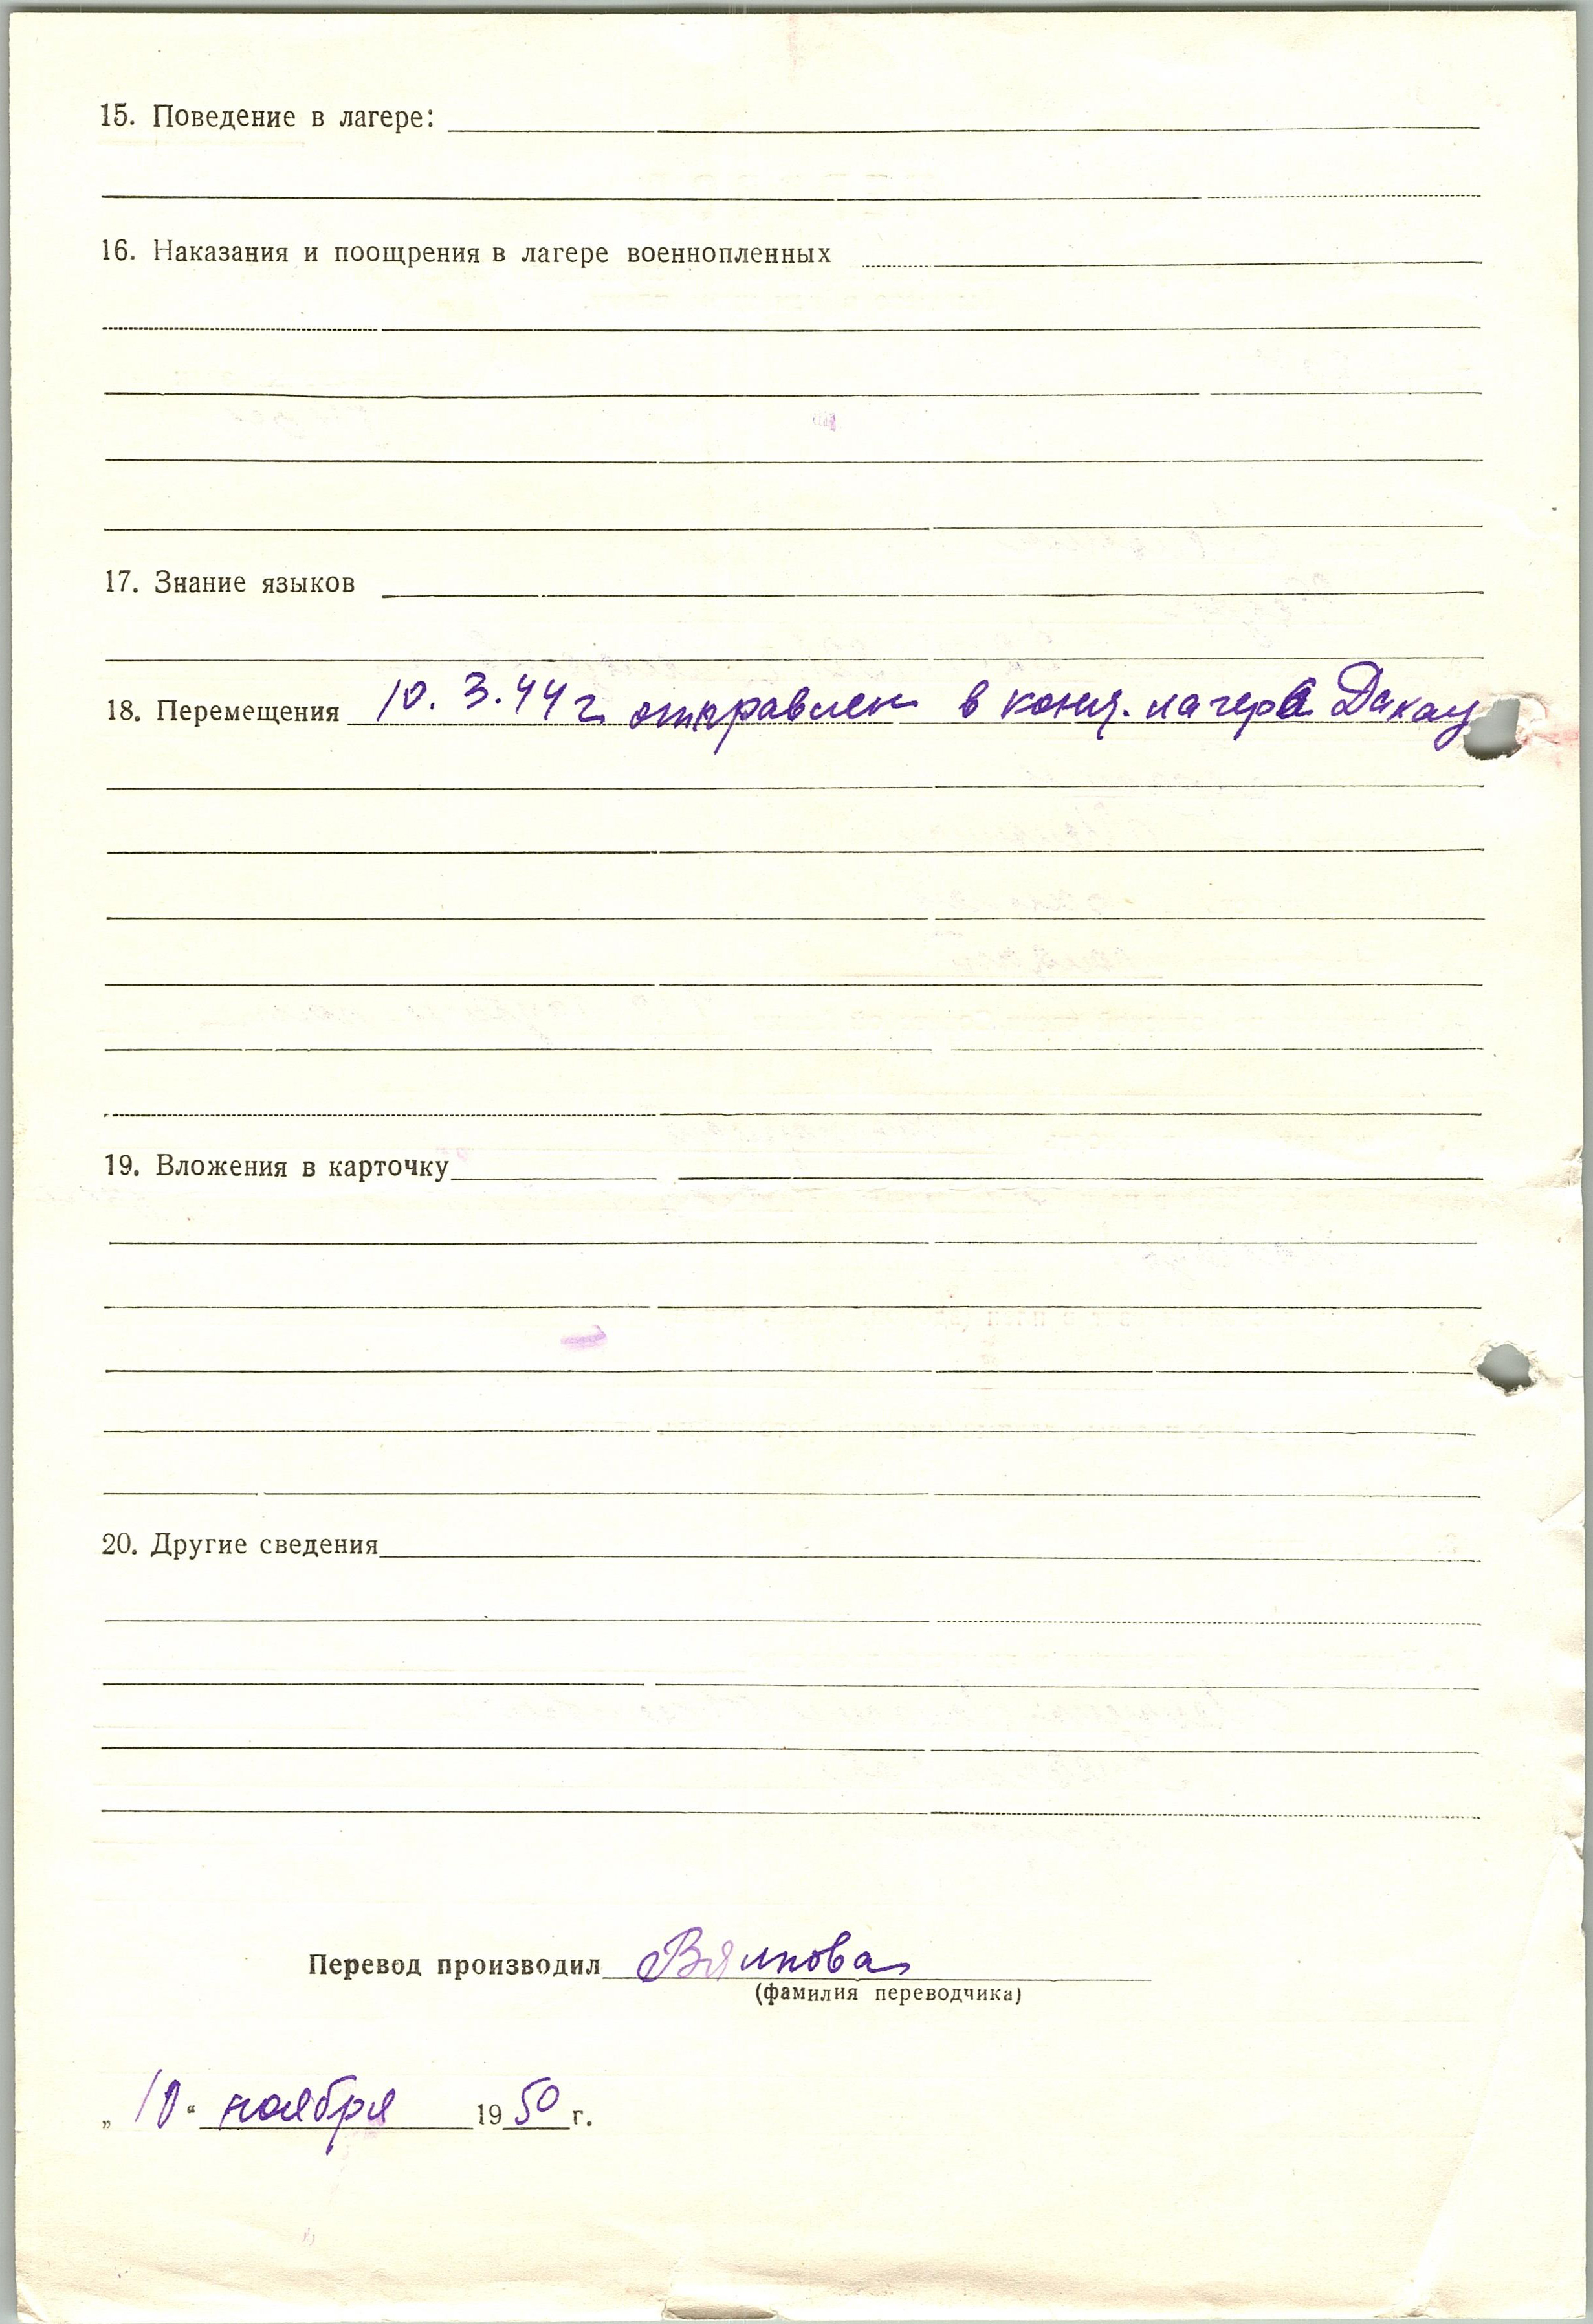 15. Поведение в лагере:
16. Наказания и поощрения в лагере военнопленных
17. Знание языков
18. Перемещения 10. 3. 44 г отправлен в конц. лагерь Дахау
19. Вложения в карточку
20. Другие сведения
Перевод производил Вялкова
(фамилия переводчика)
„10“ ноября 1950 г.